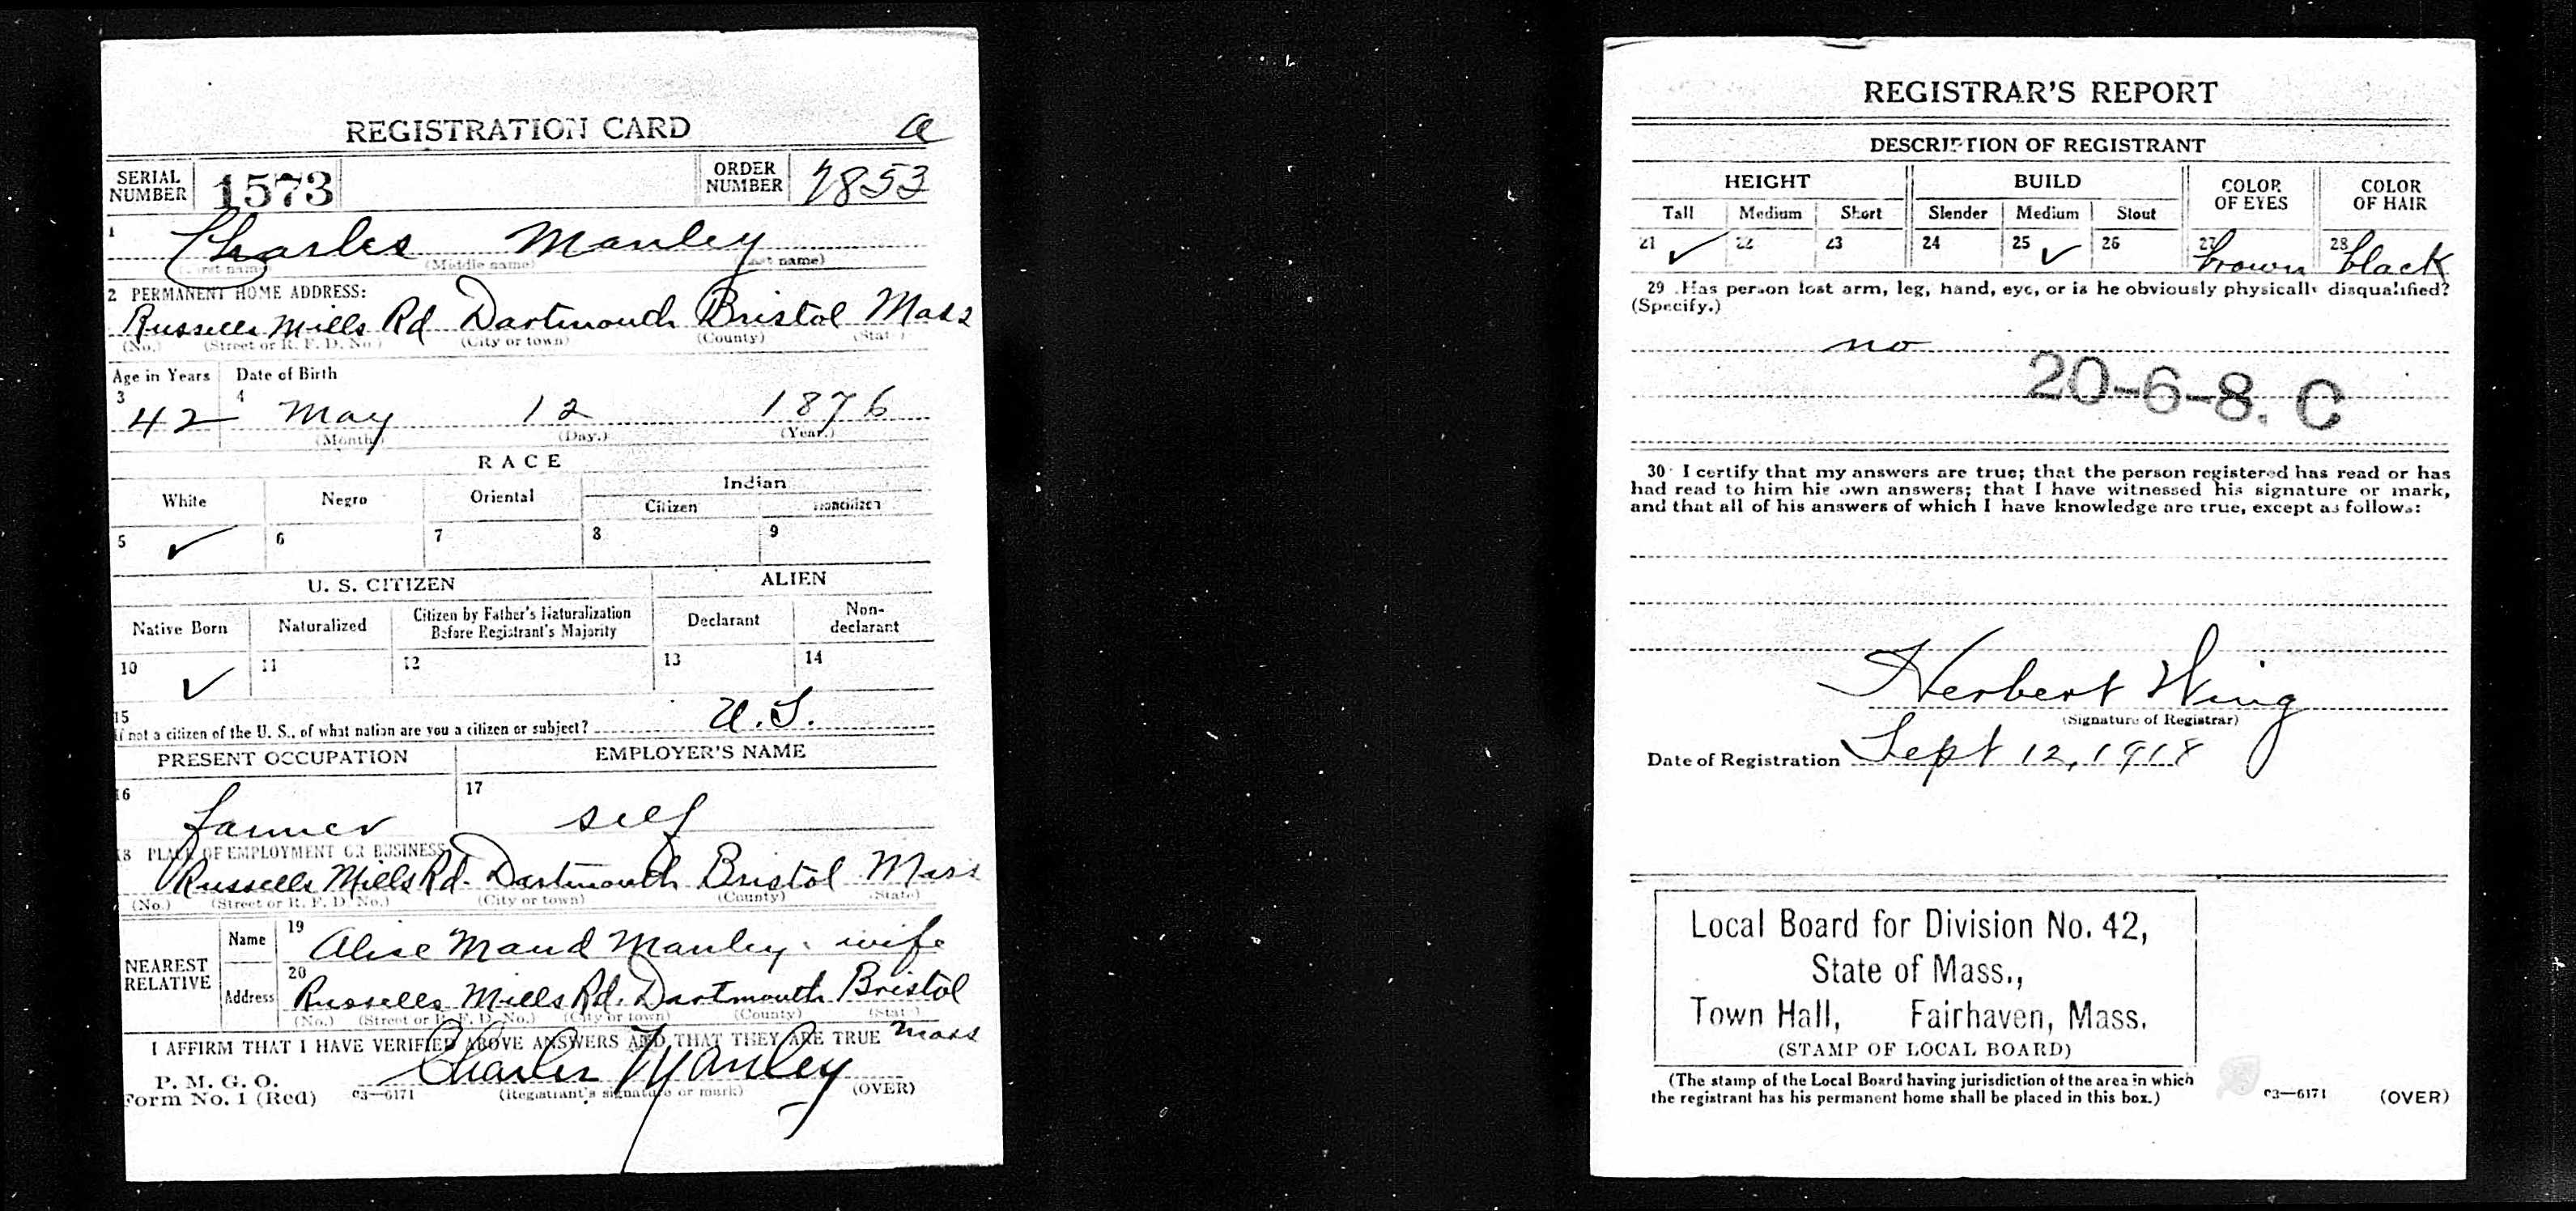 REGISTRATION CARD a
SERIAL NUMBER 1573 ORDER NUMBER 7853
1 Charles Manley
(First name) (Middle name) (Last name)
2 PERMANENT HOME ADDRESS:
Russells Mills Rd Dartmouth Bristol Mass
(No.) (Street or R. F. D. No.) (City or town) (County) (State)
Age in Years Date of Birth
3 42 4 May 12 1876
(Month) (Day.) (Year.)
RACE
White Negro Oriental Indian
Citizen Noncitizen
5 ✓ 6 7 8 9
U. S. CITIZEN ALIEN
Native Born Naturalized Citizen by Father's Naturalization Before Registrant's Majority Declarant Non-declarant
10 ✓ 11 12 13 14
15 If not a citizen of the U. S., of what nation are you a citizen or subject? U.S.
PRESENT OCCUPATION EMPLOYER'S NAME
16 farmer 17 self
18 PLACE OF EMPLOYMENT OR BUSINESS
Russells Mills Rd. Dartmouth Bristol Mass
(No.) (Street or R. F. D. No.) (City or town) (County) (State)
NEAREST RELATIVE Name 19 Alise Maud Manley. wife
Address 20 Russells Mills Rd. Dartmouth Bristol
(No.) (Street or R. F. D. No.) (City or town) (County) (State)
Mass
I AFFIRM THAT I HAVE VERIFIED ABOVE ANSWERS AND THAT THEY ARE TRUE
P. M. G. O.
Form No. 1 (Red) 03—6171 Charles Manley (OVER)
(Registrant's signature or mark)
REGISTRAR'S REPORT
DESCRIPTION OF REGISTRANT
HEIGHT BUILD COLOR OF EYES COLOR OF HAIR
Tall Medium Short Slender Medium Stout
21 ✓ 22 23 24 25 ✓ 26 27 brown 28 black
29 Has person lost arm, leg, hand, eye, or is he obviously physically disqualified?
(Specify.)
no
20-6-8. C
30 I certify that my answers are true; that the person registered has read or has
had read to him his own answers; that I have witnessed his signature or mark,
and that all of his answers of which I have knowledge are true, except as follows:
Herbert Wing
(Signature of Registrar)
Date of Registration Sept 12, 1918
Local Board for Division No. 42,
State of Mass.,
Town Hall, Fairhaven, Mass.
(STAMP OF LOCAL BOARD)
(The stamp of the Local Board having jurisdiction of the area in which
the registrant has his permanent home shall be placed in this box.)
03—6171 (OVER)